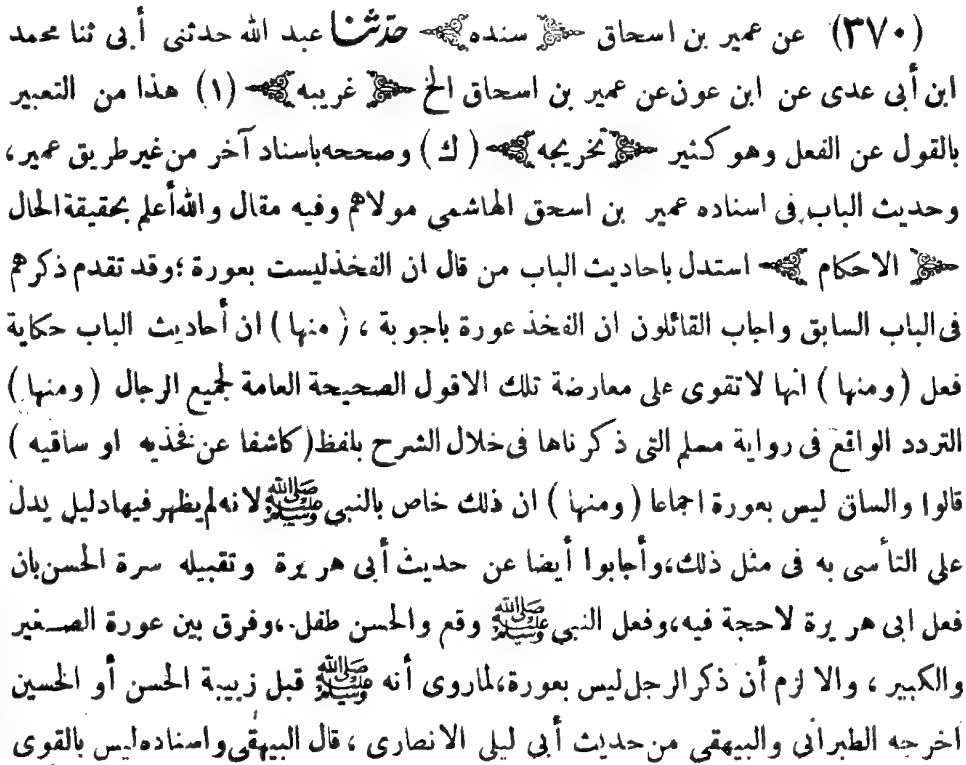 (٣٧٠) عن عمير بن اسحاق ﴿ سنده ﴾ حدثنا عبد الله حدثنى أبى ثنا محمد
ابن أبى عدى عن ابن عون عن عمير بن اسحاق الخ ﴿ غريبه ﴾ (١) هذا من التعبير
بالقول عن الفعل وهو كثير ﴿ تخريجه ﴾ (ك) وصححه باسناد آخر من غير طريق عمير،
وحديث الباب فى اسناده عمير بن اسحق الهاشمى مولاهم وفيه مقال والله أعلم بحقيقة الحال
﴿ الاحكام ﴾ استدل باحاديث الباب من قال ان الفخذ ليست بعورة ؛ وقد تقدم ذكرهم
فى الباب السابق واجاب القائلون ان الفخذ عورة باجوبة ، (منها) ان أحاديث الباب حكاية
فعل (ومنها) انها لا تقوى على معارضة تلك الاقول الصحيحة العامة لجميع الرجال (ومنها)
التردد الواقع فى رواية مسلم التى ذكرناها فى خلال الشرح بلفظ (كاشفا عن فخذيه او ساقيه)
قالوا والساق ليس بعورة اجماعا (ومنها) ان ذلك خاص بالنبى ﷺ لانه لم يظهر فيها دليل يدل
على التأسى به فى مثل ذلك، وأجابوا أيضا عن حديث أبى هريرة وتقبيله سرة الحسن بان
فعل ابى هريرة لا حجة فيه، وفعل النبى ﷺ وقع والحسن طفل، وفرق بين عورة الصغير
والكبير ، والا لزم أن ذكر الرجل ليس بعورة، لما روى أنه ﷺ قبل زبيبة الحسن أو الحسين
اخرجه الطبرانى والبيهقى من حديث أبى ليلى الانصارى ، قال البيهقى واسناده ليس بالقوى